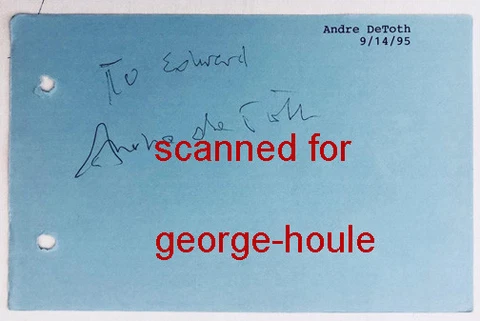 Andre DeToth
9/14/95
To Edward
Andre de Toth
scanned for
george-houle